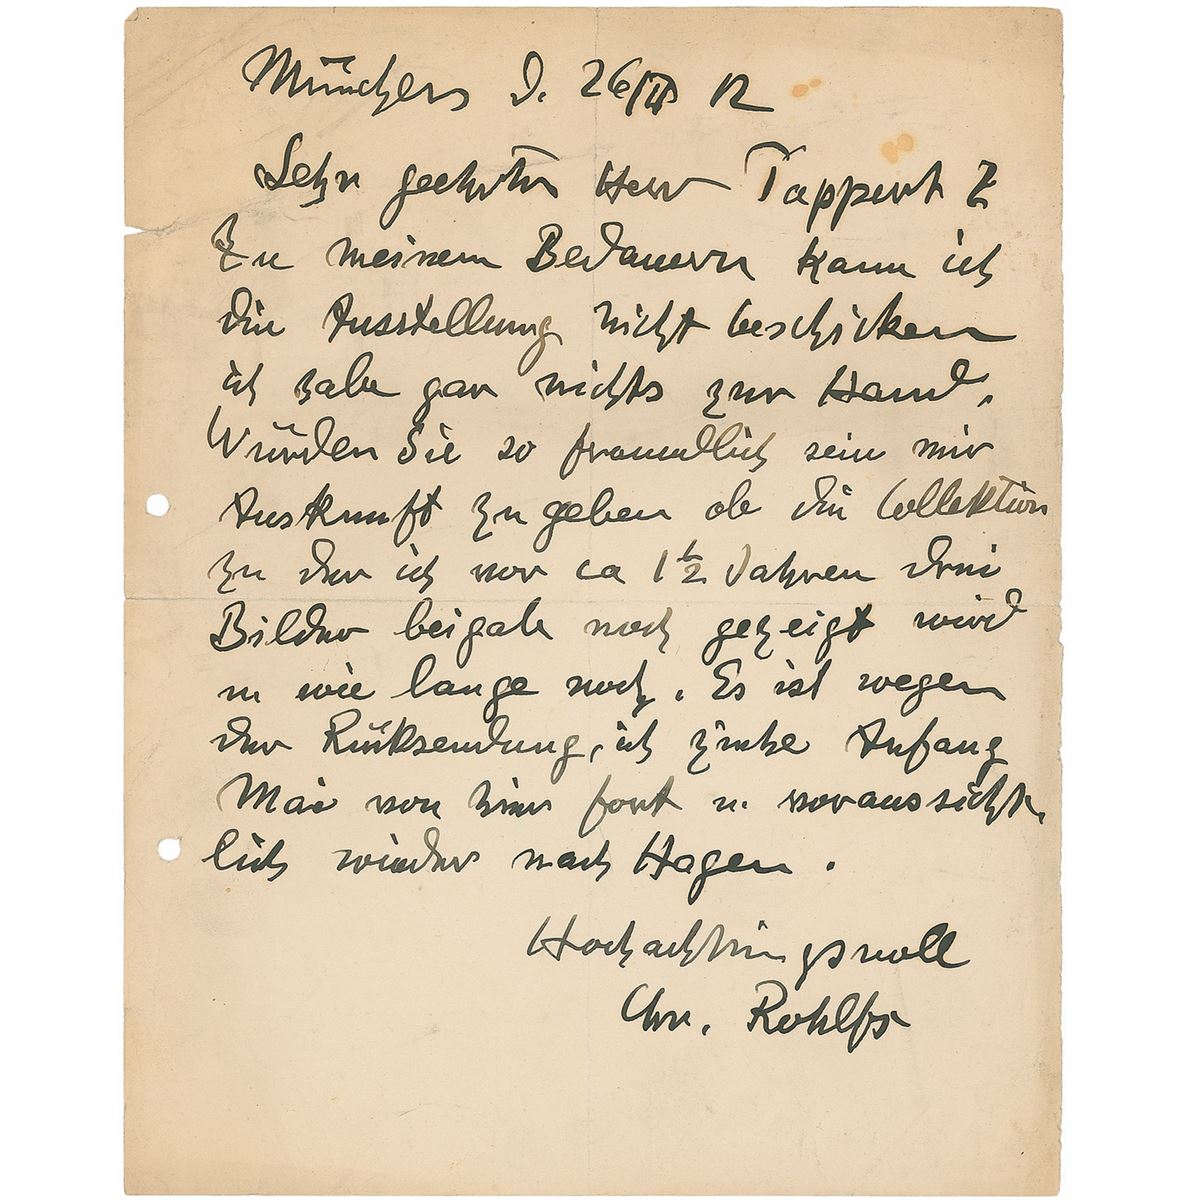 München d. 26/II 12
Sehr geehrter Herr Tappert
Zu meinem Bedauern kann ich
die Ausstellung nicht beschicken
ich habe gar nichts zur Hand.
Würden Sie so freundlich sein mir
Auskunft zu geben ob die Collektion
zu der ich vor ca 1 1/2 Jahren drei
Bilder beigab noch gezeigt wird
u wie lange noch. Es ist wegen
der Rücksendung, ich ziehe Anfang
Mai von hier fort u. voraussicht-
lich wieder nach Hagen.
Hochachtungsvoll
Chr. Rohlfs